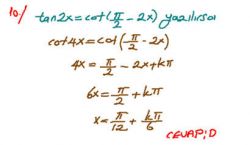 10/ tan2x = cot(π/2 - 2x) yazılırsa
cot4x = cot(π/2 - 2x)
4x = π/2 - 2x + kπ
6x = π/2 + kπ
x = π/12 + kπ/6
CEVAP: D